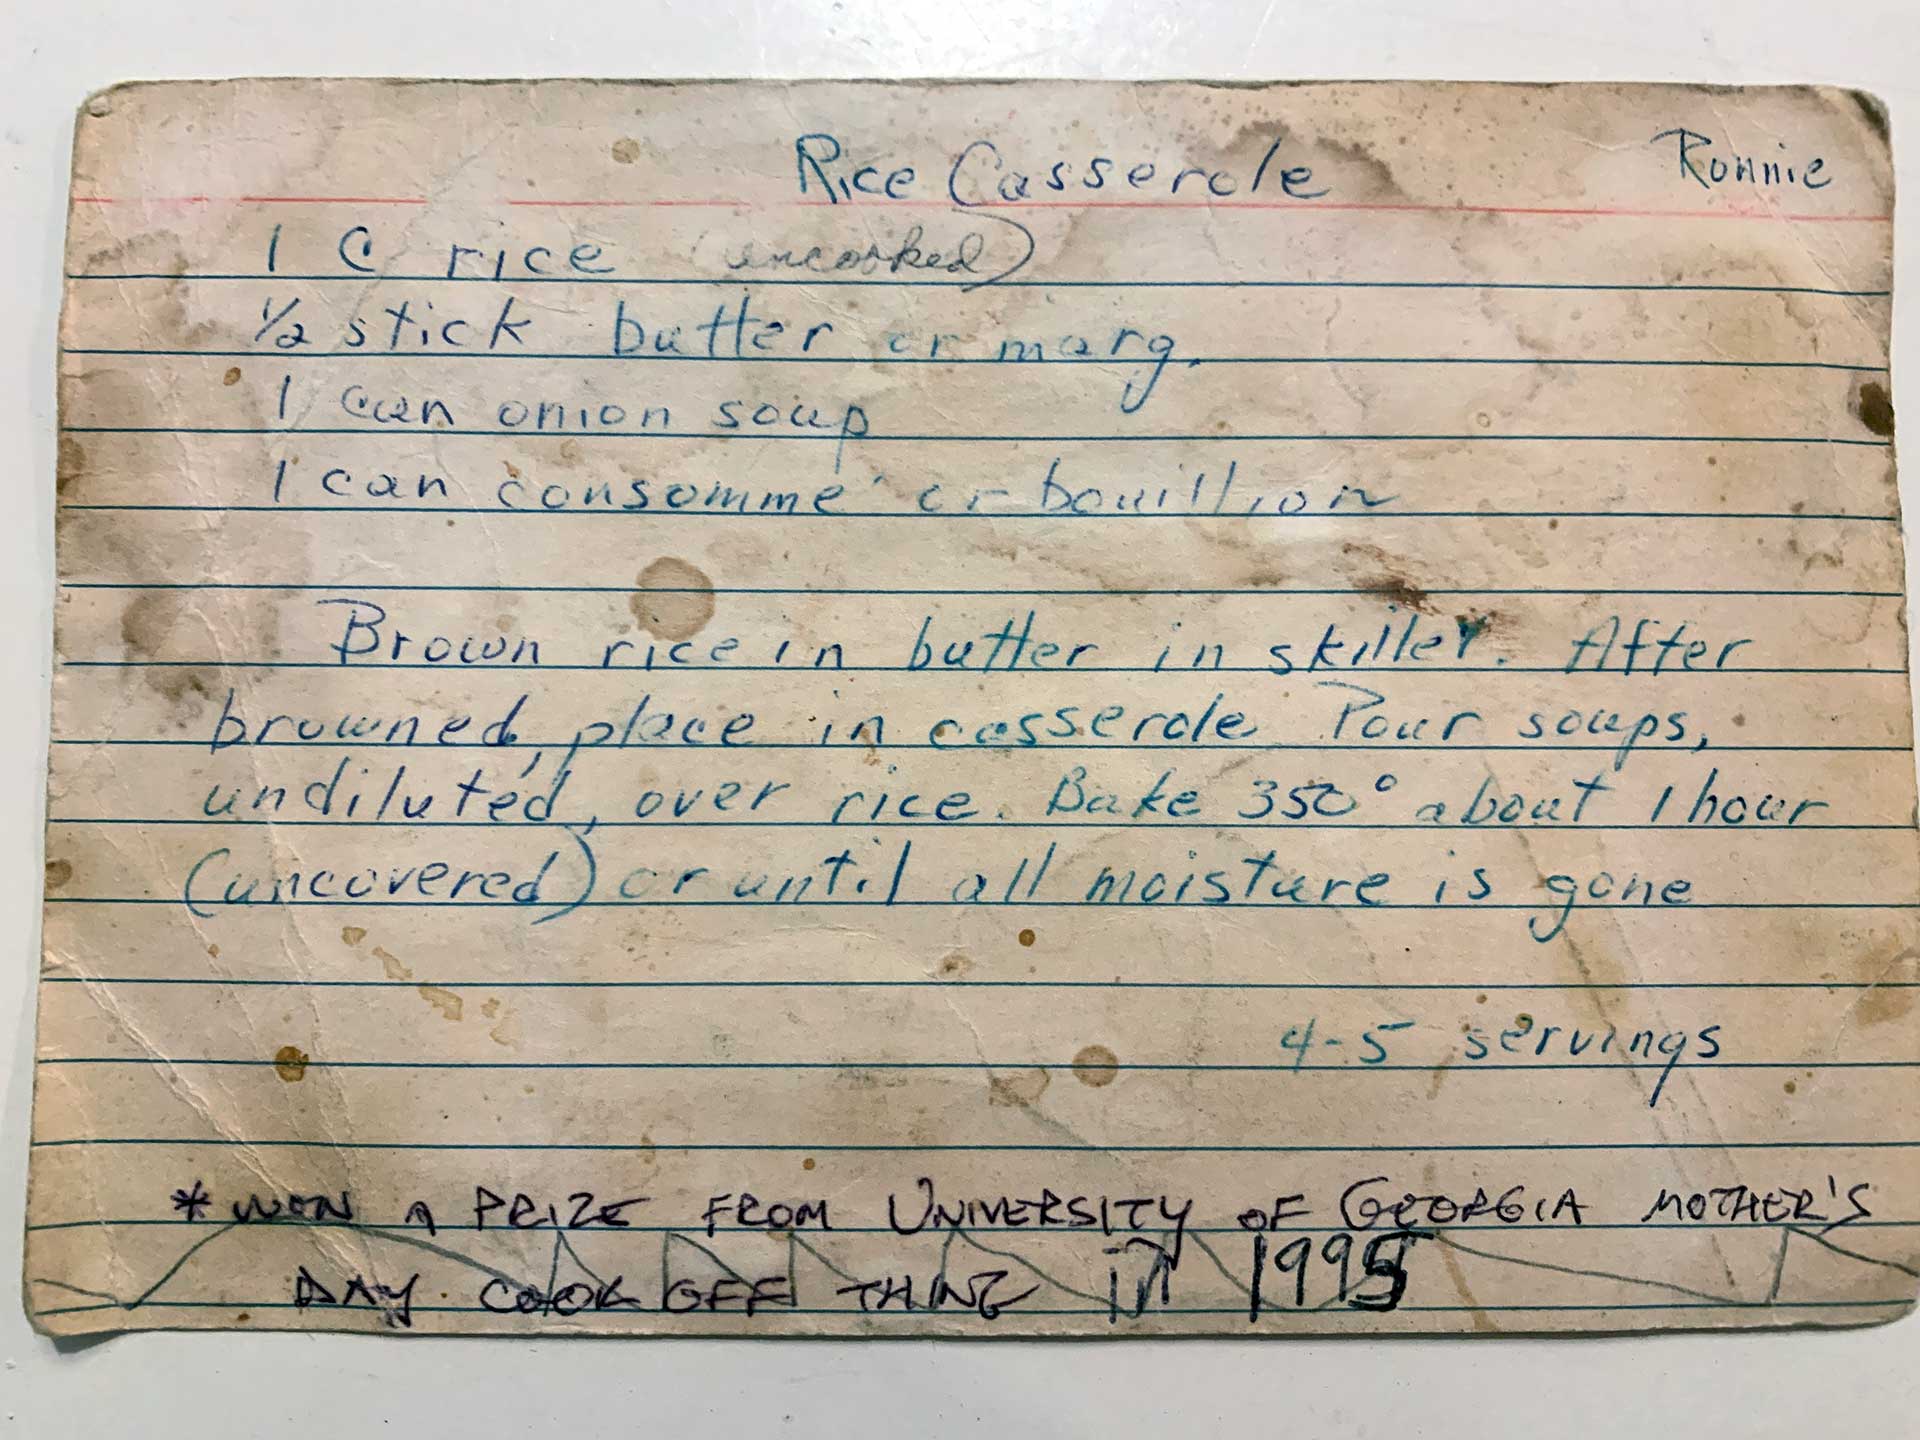 Rice Casserole Ronnie
1 C rice (uncooked)
1/2 stick butter or marg.
1 can onion soup
1 can consommé or bouillion
Brown rice in butter in skillet. After
browned, place in casserole Pour soups,
undiluted, over rice. Bake 350° about 1 hour
(uncovered) or until all moisture is gone
4-5 servings
* WON A PRIZE FROM UNIVERSITY OF GEORGIA MOTHER'S
DAY COOK OFF THING IN 1995